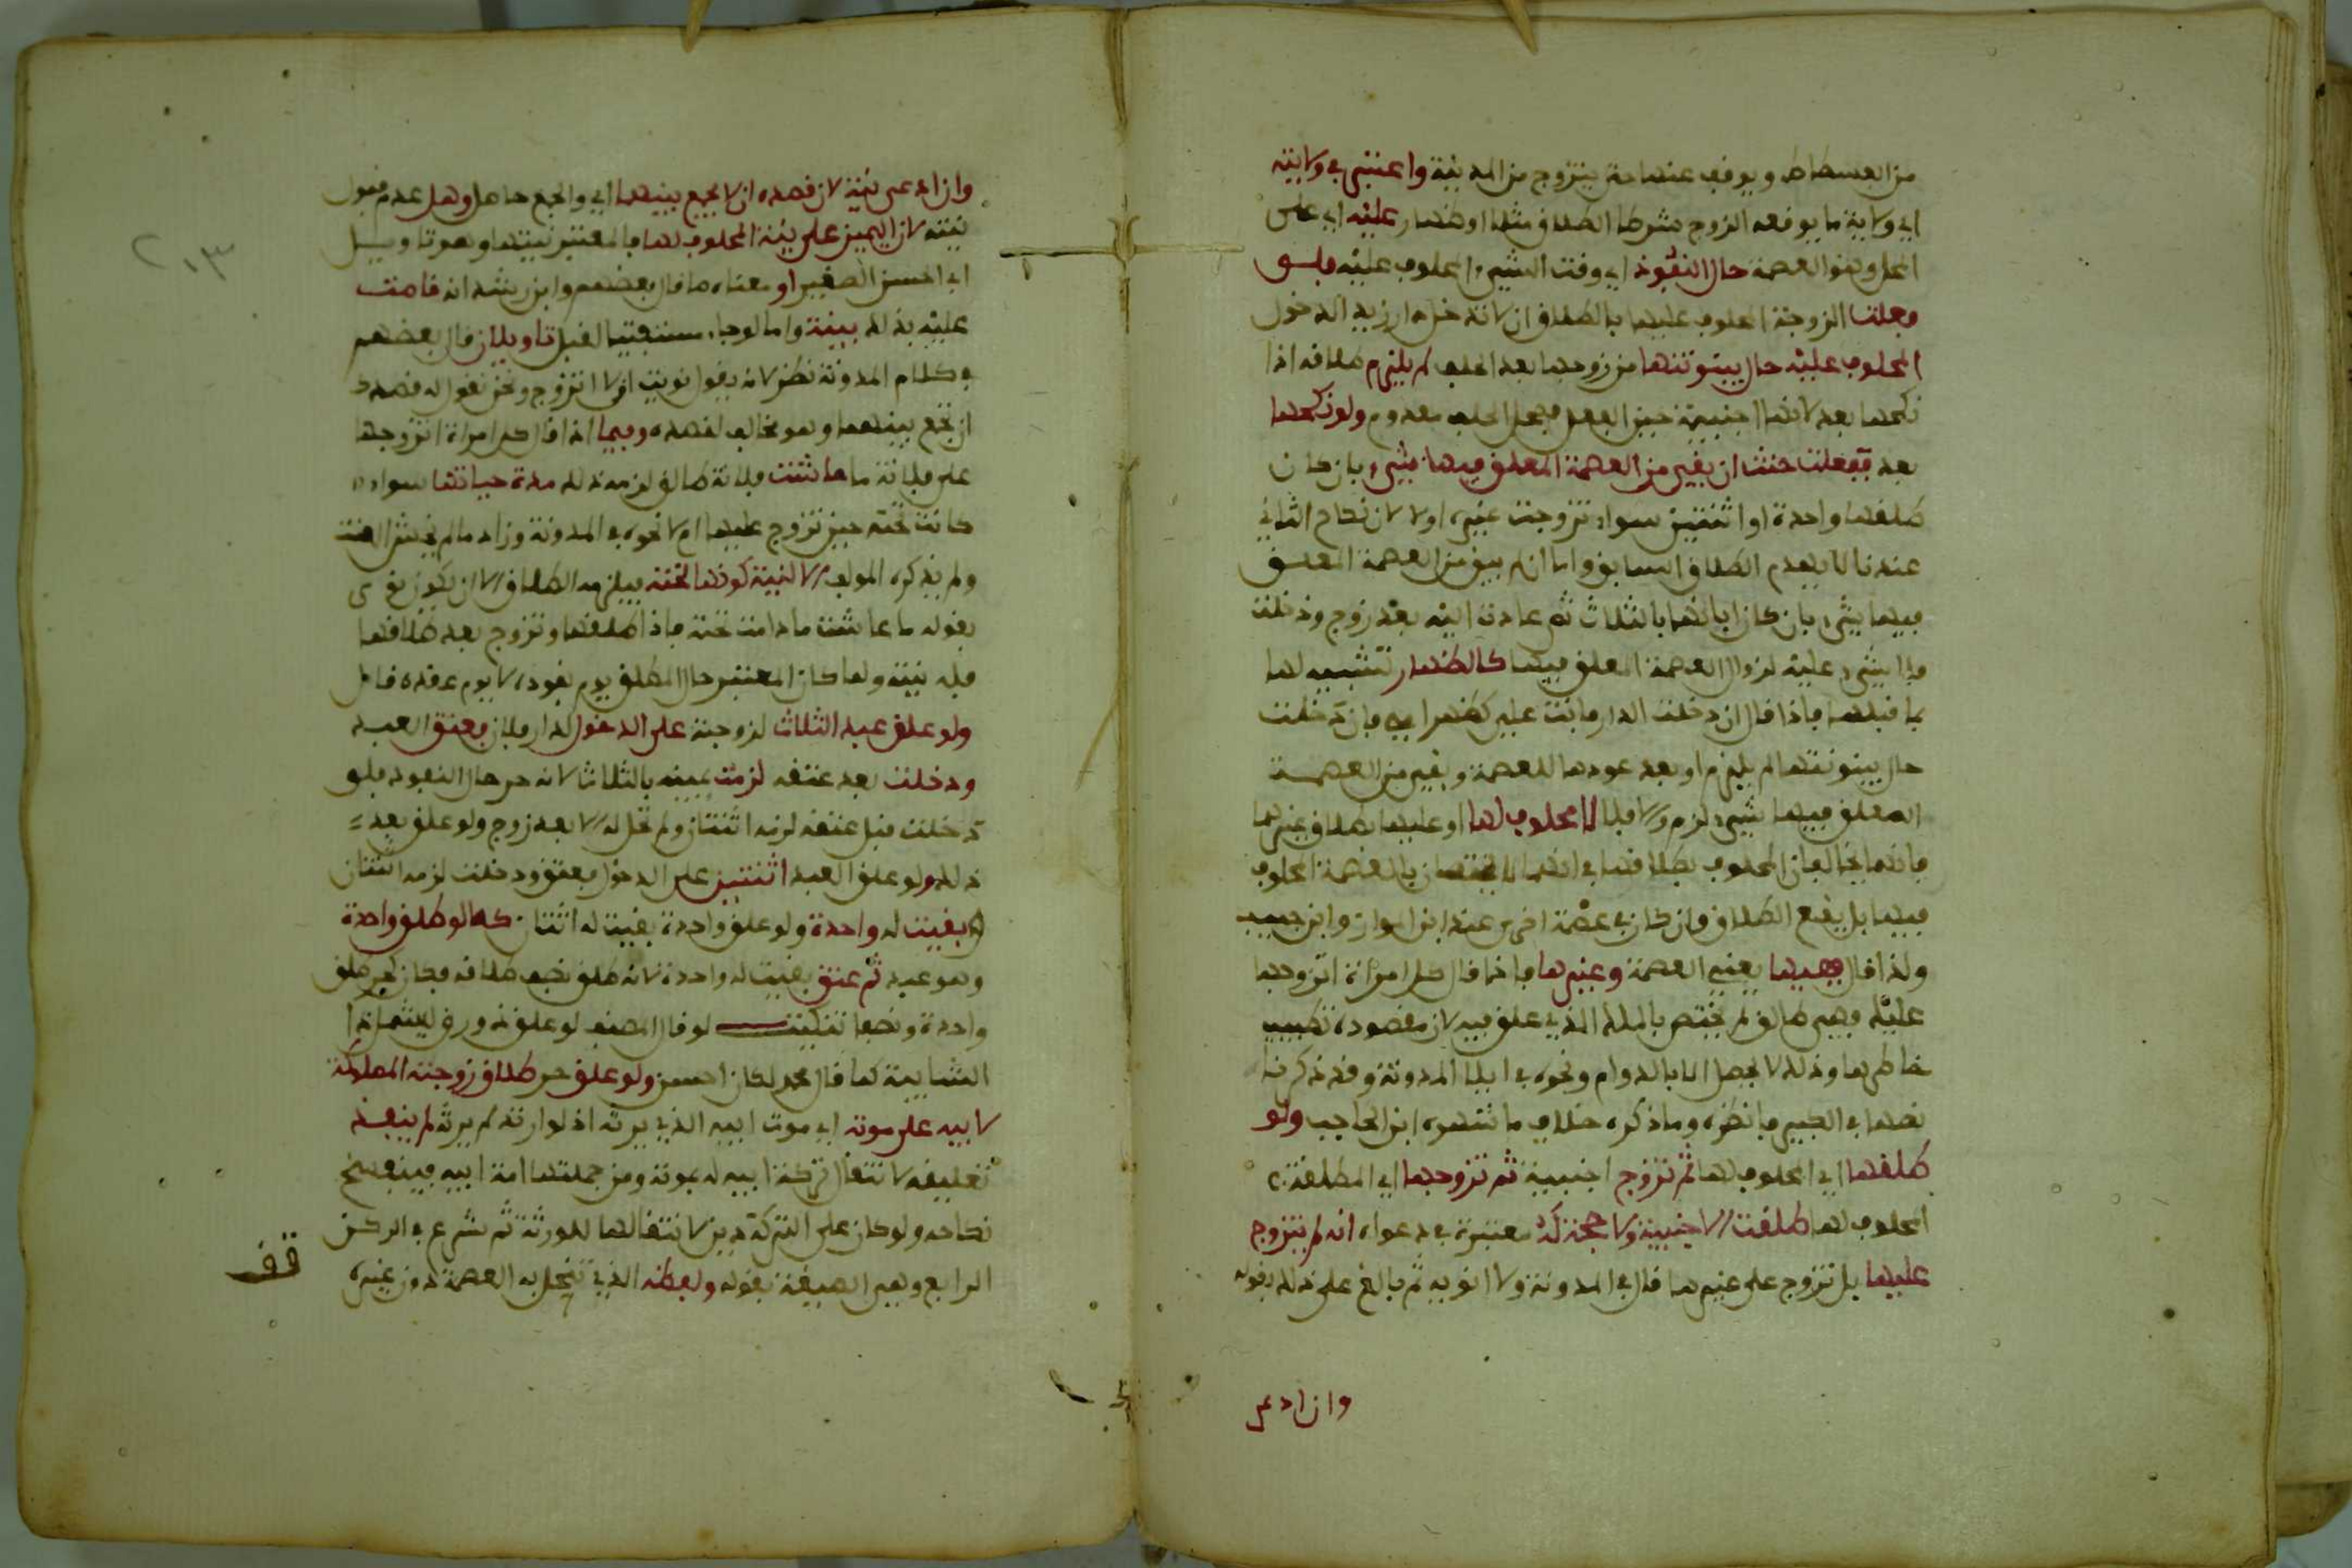 من الفسطاط ويوقف عنها حتى يتزوج من المدينة واعتبر في ولايته
اي ولاية ما يوقعه الزوج مشرطا الطلاق مثلا او ظهار عليه اي على
المحل وهو العصمة حال النفوذ اي وقت الشيء المحلوف عليه فلو
فعلت الزوجة المحلوف عليها بالطلاق ان لا تدخل دار زيد الدخول
المحلوف عليه حال بينونتها من زوجها بعد الحلف لم يلزم طلاقه اذا
نكحها بعد لانها اجنبية حين الفعل فمحل الحلف معدوم ولو نكحها
بعد ففعلته حنث ان بقي من العصمة المعلق فيها شيء بان كان
طلقها واحدة او اثنتين سواء تزوجت غيره اولا لان نكاح الثاني
عندنا لا يهدم الطلاق السابق واما ان لم يبق من العصمة المعلق
فيها شيء بان كان ابانها بالثلاث ثم عادت اليه بعد زوج ودخلت
فلا شيء عليه لزوال العصمة المعلق فيها كالظهار تشبيه لها
بما قبلها فاذا قال ان دخلت الدار فانت علي كظهر امي فان دخلت
حال بينونتها لم يلزم او بعد عودها للعصمة وبقي من العصمة
المعلق فيها شيء لزم والا فلا لا محلوف لها او عليها بطلاق غيرها
فانها تخالف المحلوف بطلاقها في انها لا تختص بالعصمة المحلوف
فيها بل يقع الطلاق وان كان في عصمة اخرى عند ابن المواز وابن حبيب
ولذا قال ففيها يعني العصمة وغيرها فاذا قال كل امراة اتزوجها
عليك فهي طالق لم يختص بالملك الذي علق فيه لان مقصوده تطييب
خاطرها وذلك لا يحصل الا بالدوام ونحوه في ايلا المدونة وقد ذكرنا
نصها في الكبير فانظره وما ذكره خلاف ما شهره ابن الحاجب ولو
طلقها اي المحلوف لها ثم تزوج اجنبية ثم تزوجها اي المطلقة
المحلوف لها طلقت الاجنبية ولا حجة له معتبرة في دعواه انه لم يتزوج
عليها بل تزوج على غيرها قال في المدونة ولا انويه ثم بالغ على ذلك بقوله
وان ادعى
٢٠٣
وان ادعى نية لان قصده ان لا يجمع بينهما اي والجمع حاصل وهل عدم قبول
نيته لان اليمين على نية المحلوف لها فالمعتبر نيتها وهو تاويل
ابي الحسن الصغير او معناه ما قال بعضهم وابن رشد انه قامت
عليه بذلك بينة واما لو جاء مستفتيا لقبل تاويلان قال بعضهم
في كلام المدونة نظر لانه يقول نويت اني لا اتزوج ونحن نقول له قصدك
ان تجمع بينهما وهو مخالف لقصده وفيما اذا قال كل امراة اتزوجها
على فلانة ما عاشت فلانة طالق لزمه ذلك مدة حياتها سواء
كانت تحته حين تزوج عليها ام لا نحوه في المدونة وزاد ما لم يخش العنت
ولم يذكره المولف الا لنية كونها تحته فيلزمه الطلاق الا ان يكون نوى
بقوله ما عاشت ما دامت تحته فاذا طلقها وتزوج بعد طلاقها
فله نيته ولما كان المعتبر حال المطلق يوم نفوذه لا يوم عقده قال
ولو علق عبد الثلاث لزوجته على الدخول لدار فلان فعتق العبد
ودخلت بعد عتقه لزمت يمينه بالثلاث لانه حر حال النفوذ فلو
دخلت قبل عتقه لزمه اثنتان ولم تحل له الا بعد زوج ولو علق بعد
ذلك ولو علق العبد اثنتين على الدخول فعتق ودخلت لزمه اثنتان
وبقيت له واحدة ولو علق واحدة بقيت له اثنتان كما لو طلق واحدة
وهو عبد ثم عتق بقيت له واحدة لانه طلق نصف طلاقه فكان كحر طلق
واحدة ونصفا تنكيت لو قال المصنف لو علق ذو رق ليشمل ذا
الشايبة كما قال محمد لكان احسن ولو علق حر طلاق زوجته المملوكة
لابيه على موته اي موت ابيه الذي يرثه اذ لو ارتد لم يرثه لم ينفذ
تعليقه لانتقال تركة ابيه له بموته ومن جملتها امة ابيه فينفسخ
نكاحه ولو كان على التركة دين لانتقالها للورثة ثم شرع في الركن
الرابع وهي الصيغة بقوله ولفظه الذي تنحل به العصمة دون غيره
قف